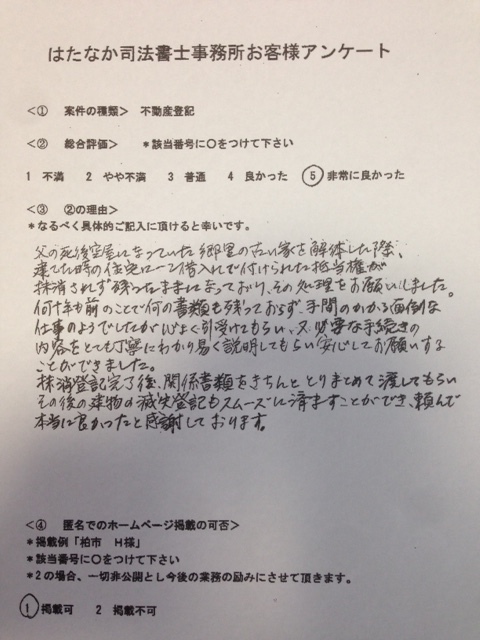 はたなか司法書士事務所お客様アンケート
＜①　案件の種類＞　不動産登記
＜②　総合評価＞　＊該当番号に○をつけて下さい
1　不満　　2　やや不満　　3　普通　　4　良かった　　⑤　非常に良かった
＜③　②の理由＞
＊なるべく具体的ご記入に頂けると幸いです。
父の死後空屋になっていた郷里の古い家を解体した際、
建てた時の住宅ローン借入れで付けられた抵当権が
抹消されず残ったままになっており、その処理をお願いしました。
何十年も前のことで何の書類も残っておらず、手間のかかる面倒な
仕事のようでしたが心よく引受けてもらい、又、必要な手続きの
内容をとても丁寧にわかり易く説明してもらい安心してお願いする
ことができました。
抹消登記完了後、関係書類をきちんととりまとめて渡してもらい
その後の建物の滅失登記もスムーズに済ますことができ、頼んで
本当に良かったと感謝しております。
＜④　匿名でのホームページ掲載の可否＞
＊掲載例「柏市　H様」
＊該当番号に○をつけて下さい
＊2の場合、一切非公開とし今後の業務の励みにさせて頂きます。
①掲載可　　2　掲載不可